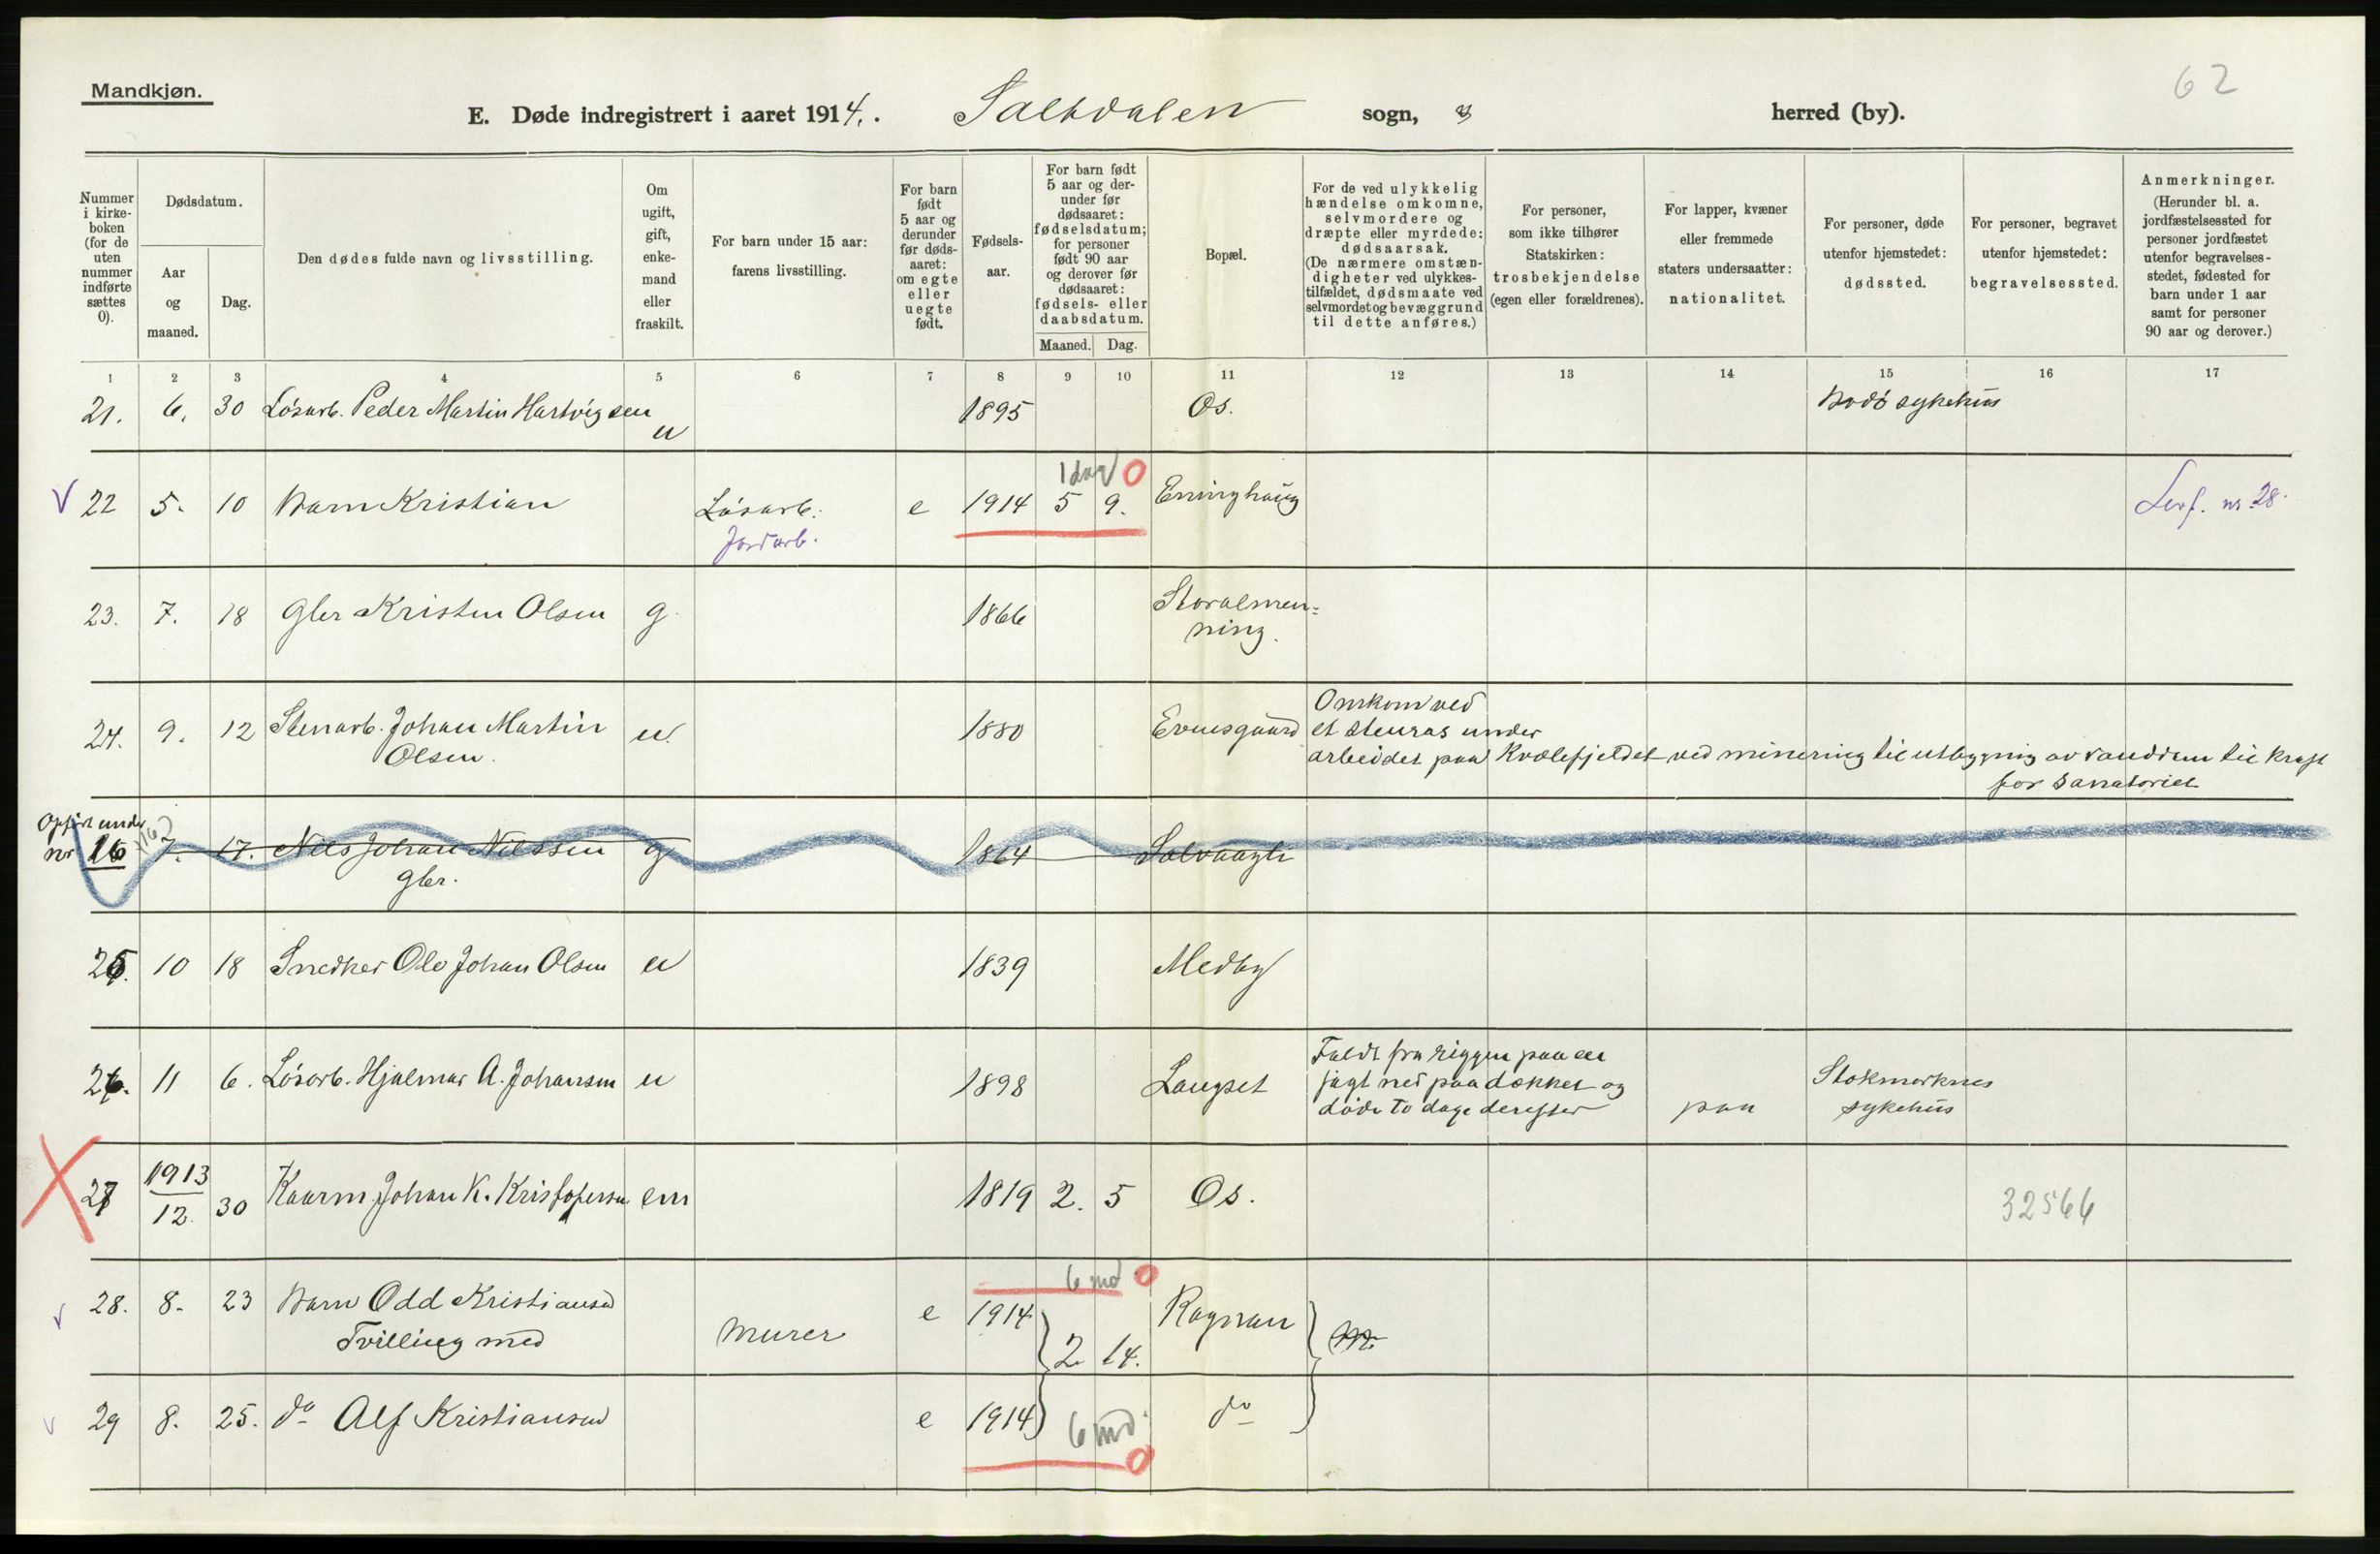 62
Mandkjøn.
E. Døde indregistrert i aaret 1914. Saltdalen sogn, herred (by).
Nummer i kirke- boken (for de uten nummer indførte sættes 0).
Dødsdatum.
Aar og maaned.
Dag.
Den dødes fulde navn og livsstilling.
Om ugift, gift, enke- mand eller fraskilt.
For barn under 15 aar: farens livsstilling.
For barn født 5 aar og derunder før døds- aaret: om egte eller uegte født.
Fødsels- aar.
For barn født 5 aar og der- under før dødsaaret: fødselsdatum; for personer født 90 aar og derover før dødsaaret: fødsels- eller daabsdatum.
Maaned. Dag.
Bopæl.
For de ved ulykkelig hændelse omkomne, selvmordere og dræpte eller myrdede: dødsaarsak. (De nærmere omstæn- digheter ved ulykkes- tilfældet, dødsmaate ved selvmordet og bevæggrund til dette anføres.)
For personer, som ikke tilhører Statskirken: trosbekjendelse (egen eller forældrenes).
For lapper, kvæner eller fremmede staters undersaatter: nationalitet.
For personer, døde utenfor hjemstedet: dødssted.
For personer, begravet utenfor hjemstedet: begravelsessted.
Anmerkninger. (Herunder bl. a. jordfæstelsessted for personer jordfæstet utenfor begravelses- stedet, fødested for barn under 1 aar samt for personer 90 aar og derover.)
1 2 3 4 5 6 7 8 9 10 11 12 13 14 15 16 17
21. 6. 30 Løsarb. Peder Martin Hartvigsen u 1895 Os. Bodø sykehus
1 dag 0
22 5. 10 Barn Kristian Løsarb. e 1914 5 9. Enninghaug Levf. nr. 28.
Jordarb.
23. 7. 18 Gbr Kristen Olsen g. 1866 Storalmen=
ning.
Omkom ved
24. 9. 12 Stenarb. Johan Martin u. 1880 Evnesgaard et stenras under
Olsen. arbeidet paa Kvælefjeldet ved minering til utbygning av vanddam til kraft
for sanatoriet
Opført under
nr 16 7. 17. Nils Johan Nilssen g 1864 Saltvaagli
Gbr.
25. 10 18 Snedker Ole Johan Olsen u 1839 Medby
Faldt fra riggen paa en
26. 11 6. Løsarb. Hjalmar A. Johansen u 1898 Langset jagt ned paa dækket og Stokmarknes
døde to dage derefter paa sykehus
27 1913
12 30 Kaarm Johan K. Kristofersen em 1819 2. 5 Os. 32566
6 md 0
28. 8. 23 Barn Odd Kristiansen e 1914 Rognan
Tvilling med murer 2 14.
29 8. 25. do Alf Kristiansen e 1914 do
6 md. 0